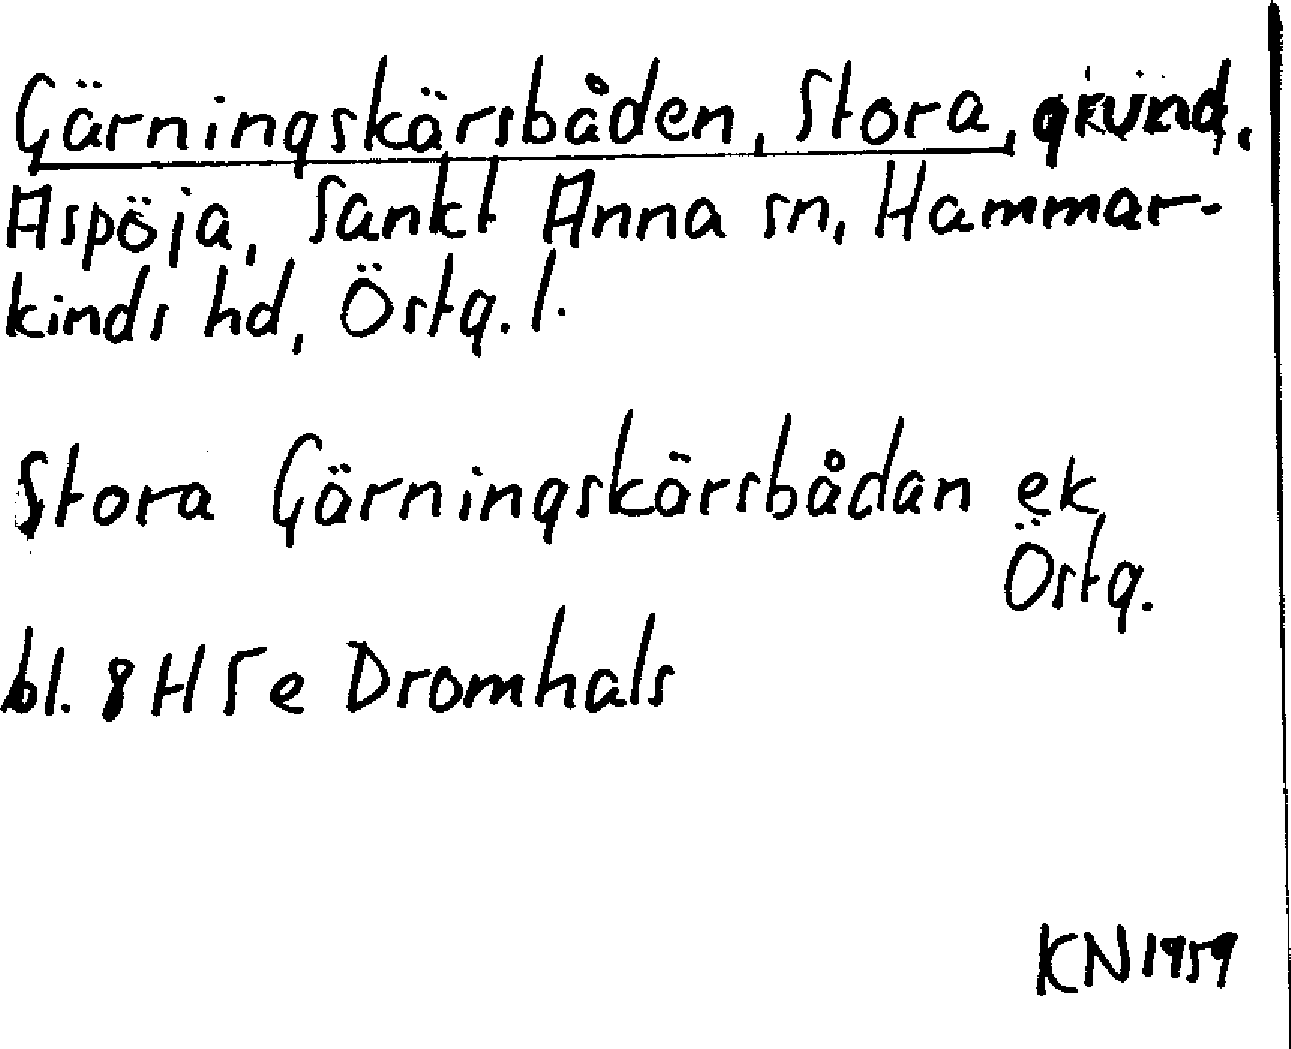 Gärningskärsbåden, Stora, grund,
Aspöja, Sankt Anna sn, Hammar-
kinds hd, Östg. l.
Stora Gärningskärsbådan ek
Östg.
bl. 8 H 5 e Dromhals
KN 1959